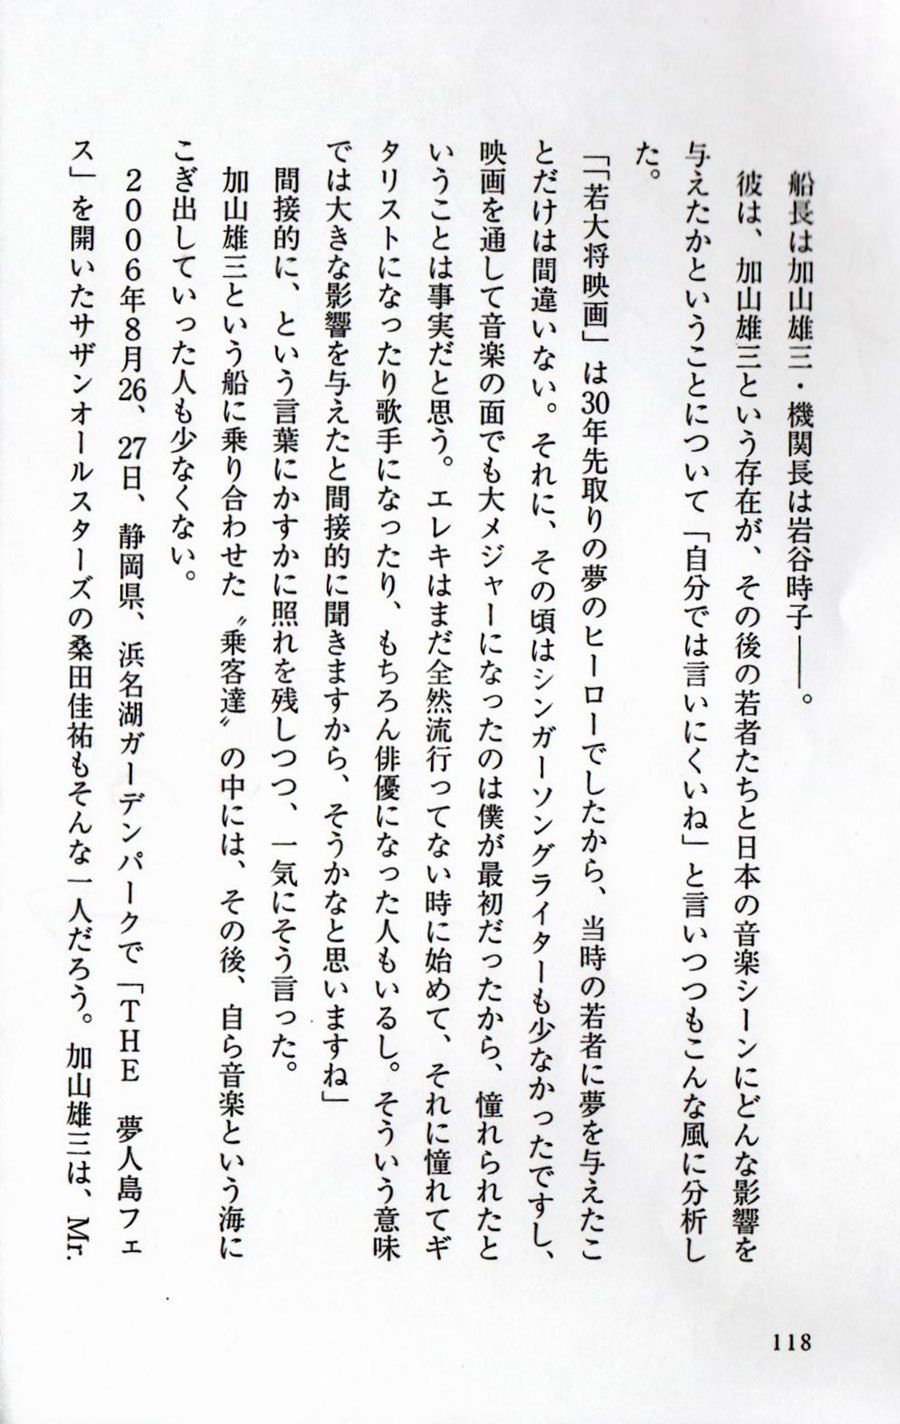 船長は加山雄三・機関長は岩谷時子――。
彼は、加山雄三という存在が、その後の若者たちと日本の音楽シーンにどんな影響を
与えたかということについて「自分では言いにくいね」と言いつつもこんな風に分析し
た。
「「若大将映画」は30年先取りの夢のヒーローでしたから、当時の若者に夢を与えたこ
とだけは間違いない。それに、その頃はシンガーソングライターも少なかったですし、
映画を通して音楽の面でも大メジャーになったのは僕が最初だったから、憧れられたと
いうことは事実だと思う。エレキはまだ全然流行ってない時に始めて、それに憧れてギ
タリストになったり歌手になったり、もちろん俳優になった人もいるし。そういう意味
では大きな影響を与えたと間接的に聞きますから、そうかなと思いますね」
間接的に、という言葉にかすかに照れを残しつつ、一気にそう言った。
加山雄三という船に乗り合わせた〝乗客達〟の中には、その後、自ら音楽という海に
こぎ出していった人も少なくない。
2006年8月26、27日、静岡県、浜名湖ガーデンパークで「THE 夢人島フェ
ス」を開いたサザンオールスターズの桑田佳祐もそんな一人だろう。加山雄三は、Mr.
118